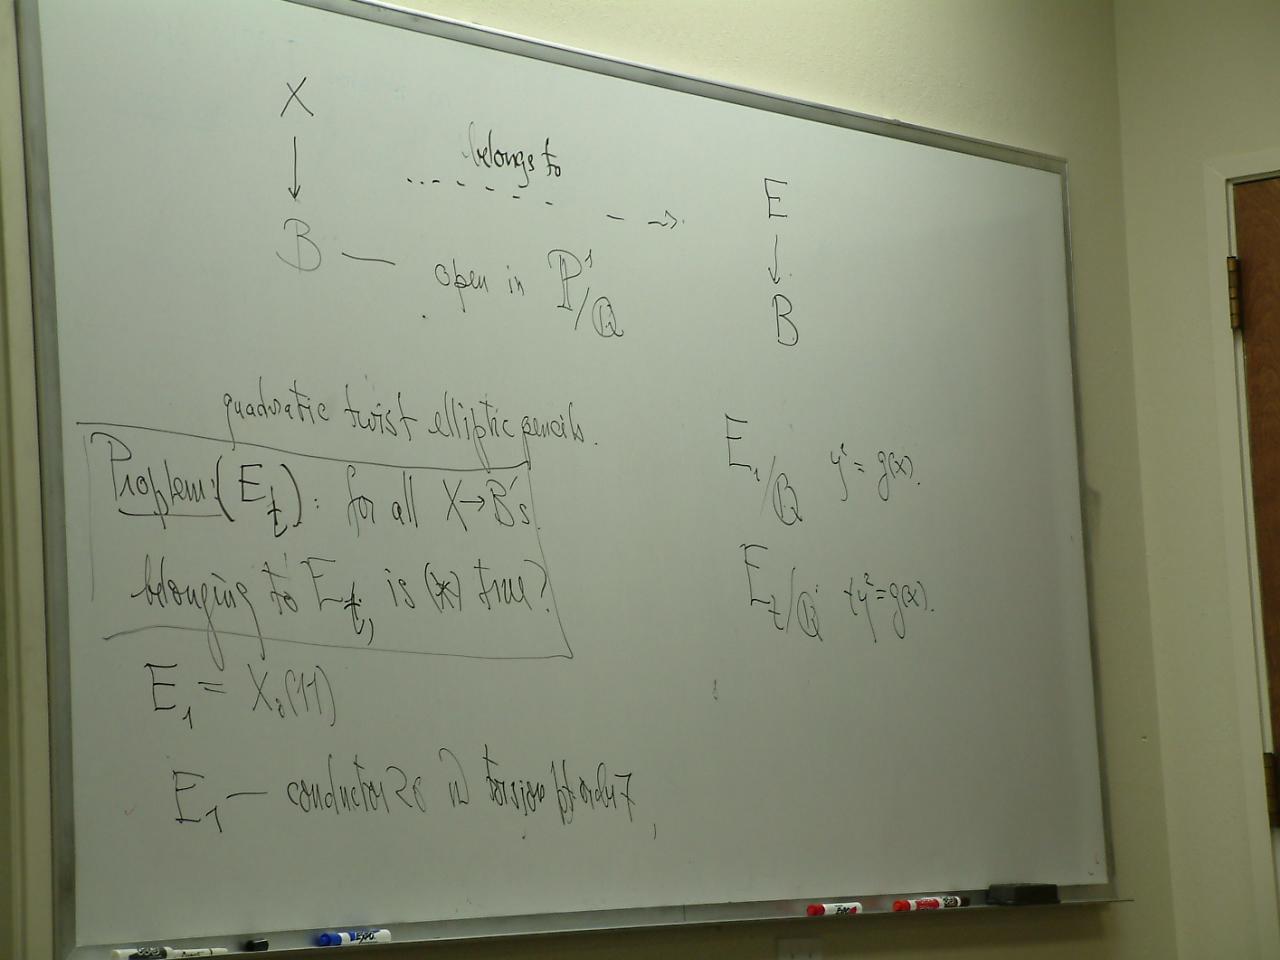 X
↓
B — open in P¹/Q
belongs to
E
↓
B
quadratic twist elliptic pencils.
Problem: (E_t): for all X→B's
belonging to E_t, is (*) true?
E₁ = X₀(11)
E₁ — conductor 26 w torsion pt order 7
E₁/Q y² = g(x).
E_t/Q ty² = g(x).